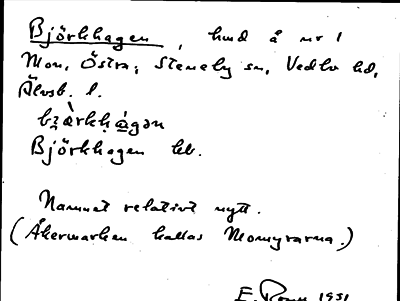 Björkhagen, hmd å nr 1
Mon, Östra, Steneby sn, Vedbo hd,
Älvsb. l.
bjæ̀rkhágən
Björkhagen bb.
Namnet relativt nytt.
(Åkermarken kallas Momyrarna.)
E. 1931